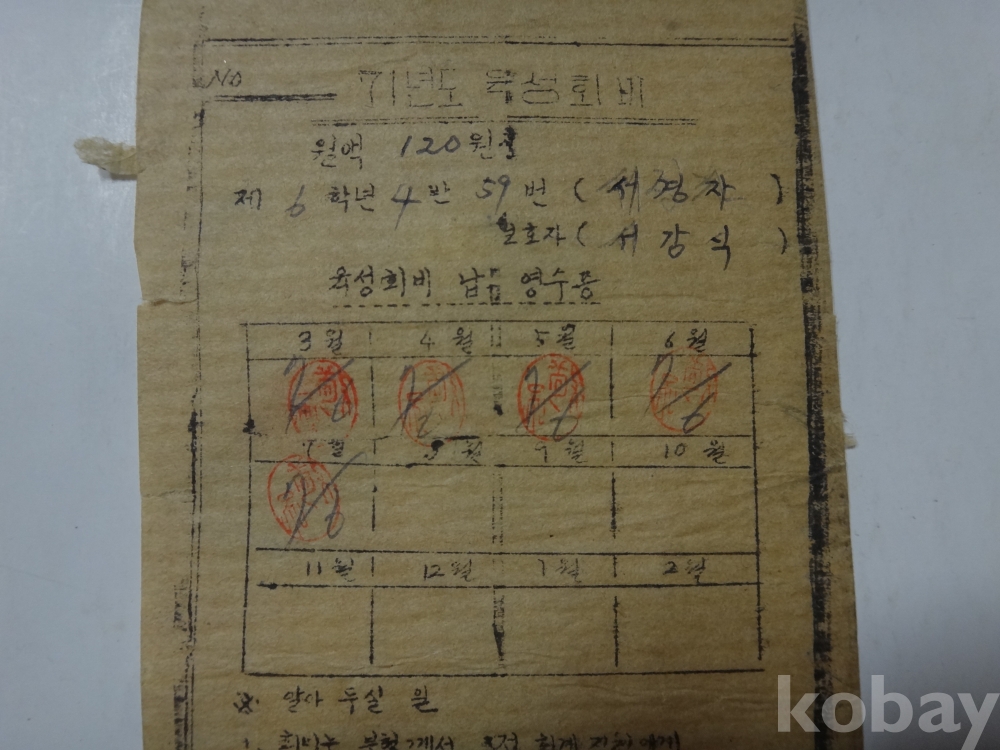 No
71년도 육성회비
월액 120원
제 6 학년 4 반 59 번 (서경자)
보호자 (서강식)
육성회비 납입 영수증
3월 4월 5월 6월
7/6 7/6 7/6 7/6
7월 8월 9월 10월
7/6
11월 12월 1월 2월
※ 알아 두실 일
1. 회비는
kobay